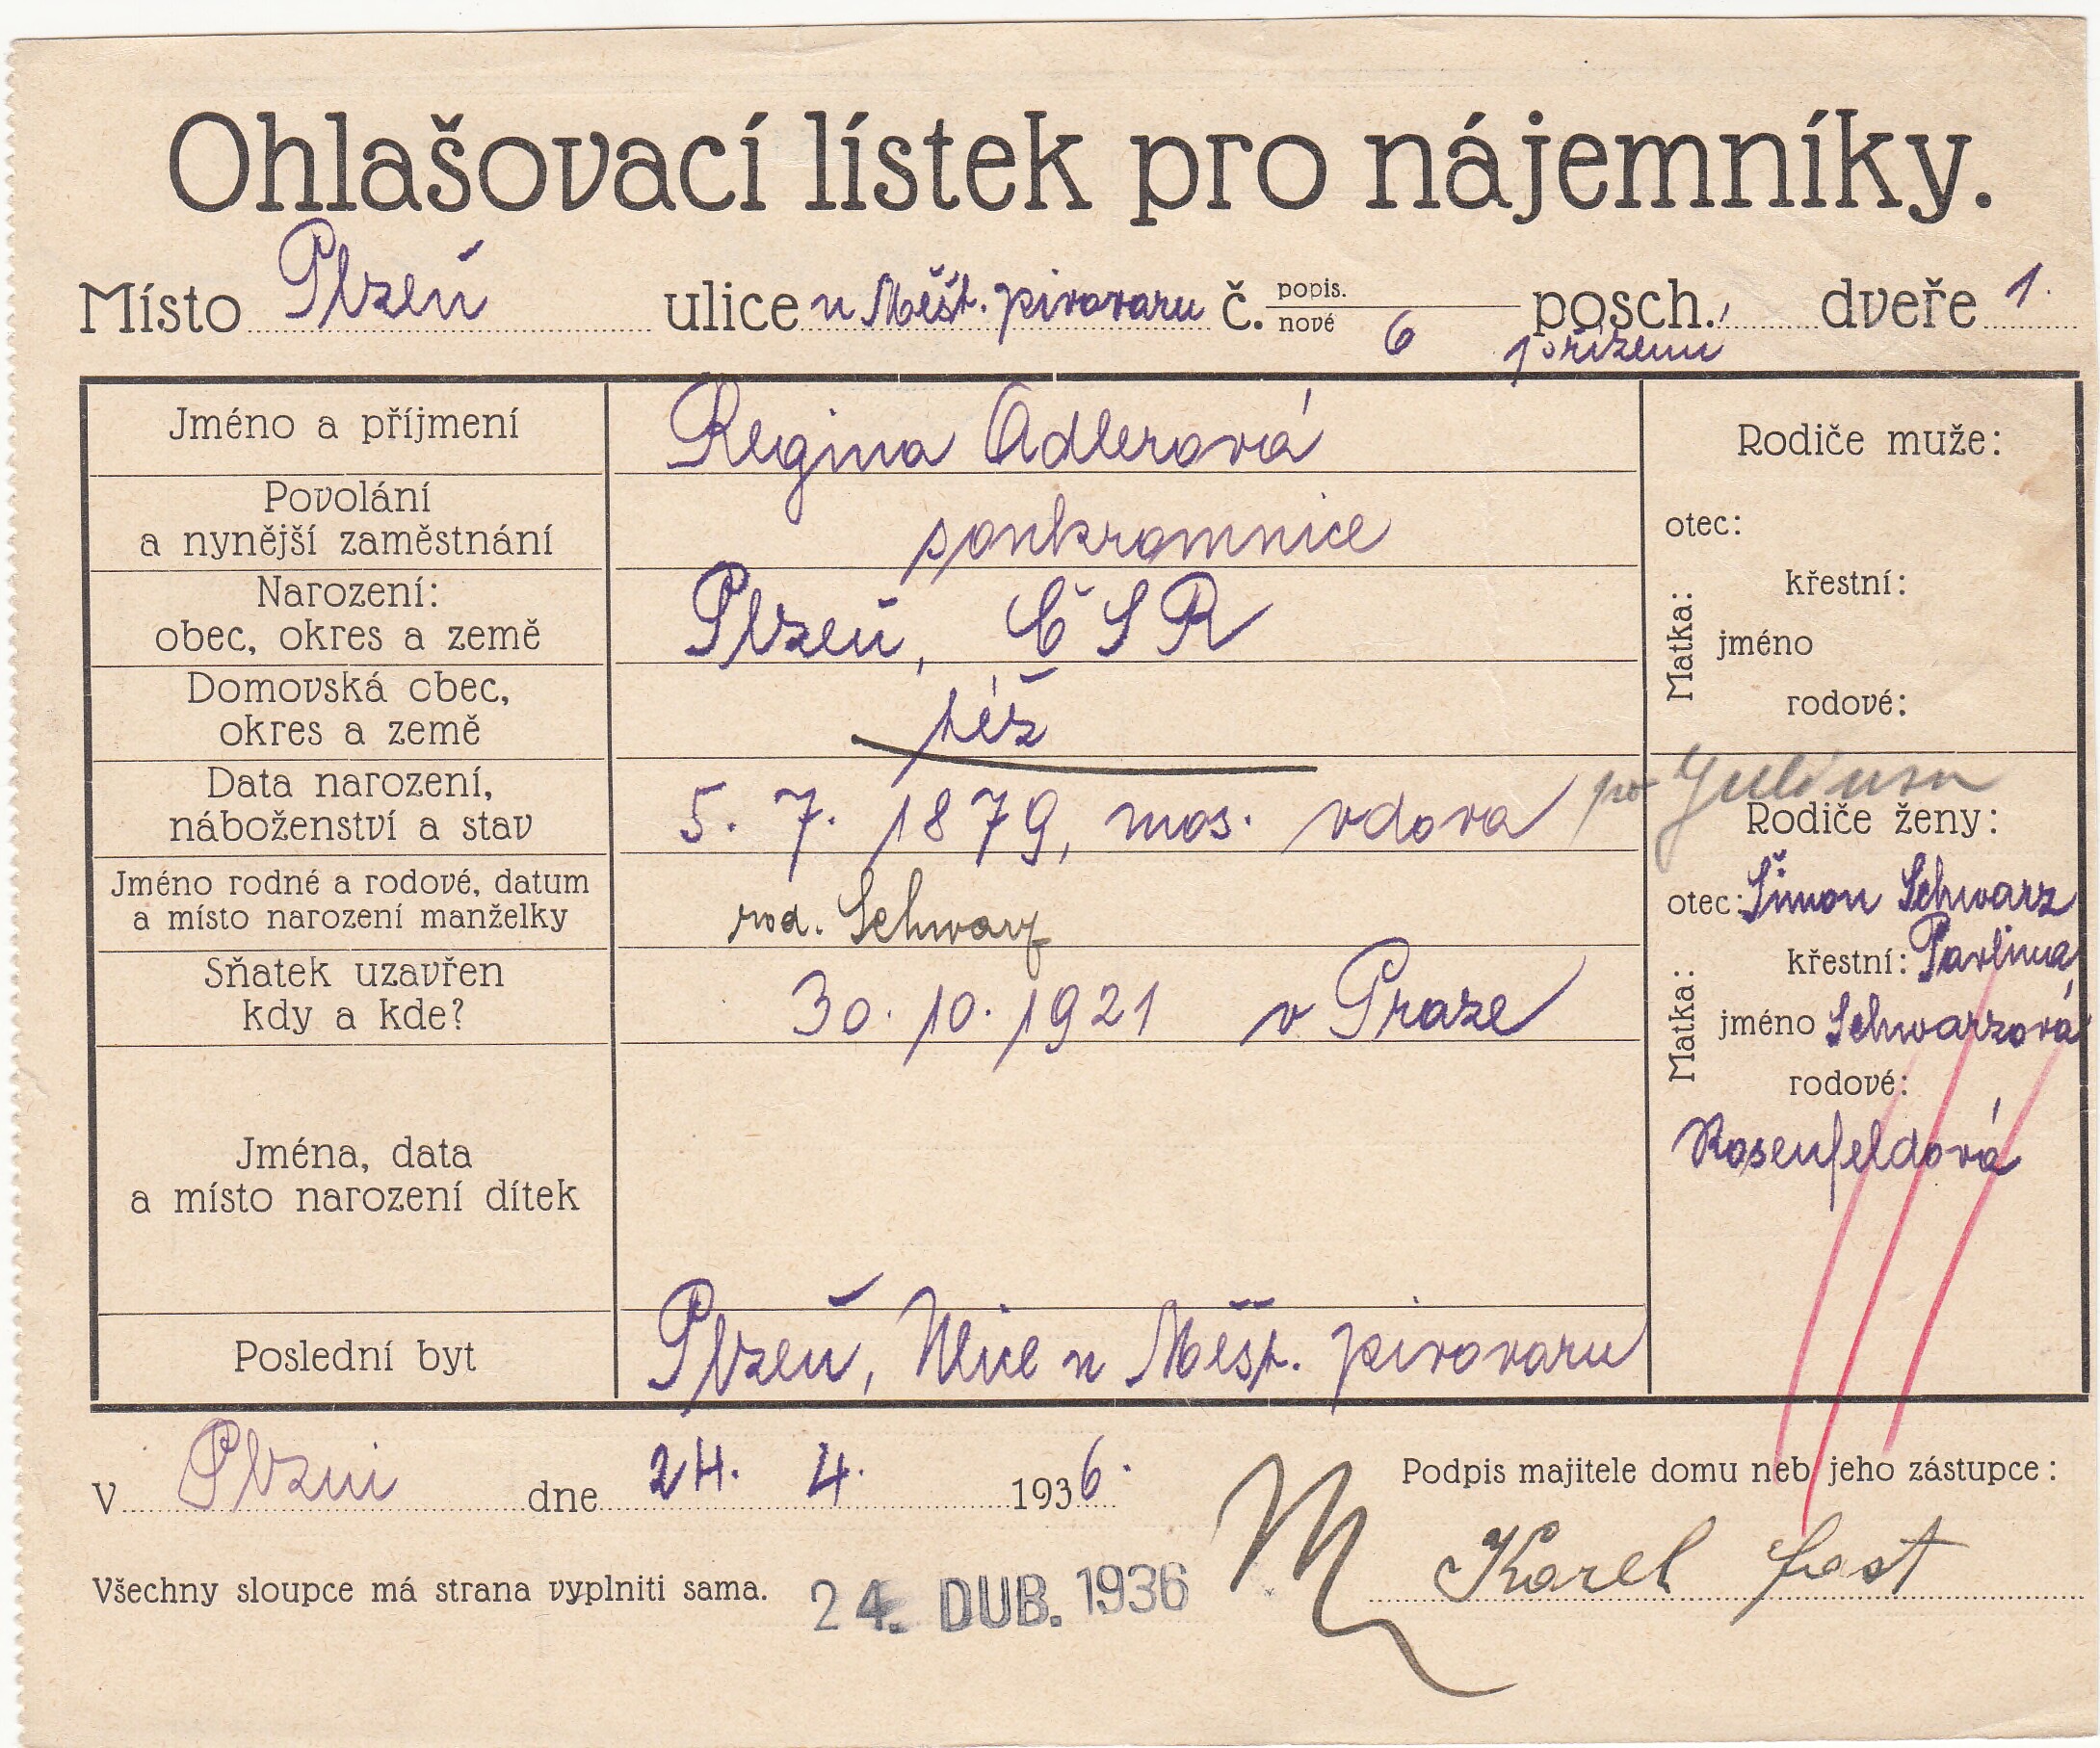 Ohlašovací lístek pro nájemníky.
Místo Plzeň ulice u Měšť. pivovaru č. popis. nové 6 posch. přízemí dveře 1.
Jméno a příjmení Regina Adlerová
Povolání a nynější zaměstnání soukromnice
Narození: obec, okres a země Plzeň, ČSR
Domovská obec, okres a země též
Data narození, náboženství a stav 5. 7. 1879, mos. vdova po Juliusu
Jméno rodné a rodové, datum a místo narození manželky rod. Schwarz
Sňatek uzavřen kdy a kde? 30. 10. 1921 v Praze
Jména, data a místo narození dítek
Poslední byt Plzeň, Ulice u Měšť. pivovaru
Rodiče muže:
otec:
Matka: křestní:
jméno
rodové:
Rodiče ženy:
otec: Šimon Schwarz
Matka: křestní: Pavlina
jméno Schwarzová
rodové:
Rosenfeldová
V Plzni dne 24. 4. 1936.
Podpis majitele domu neb jeho zástupce:
Karel
Všechny sloupce má strana vyplniti sama.
24. DUB. 1936